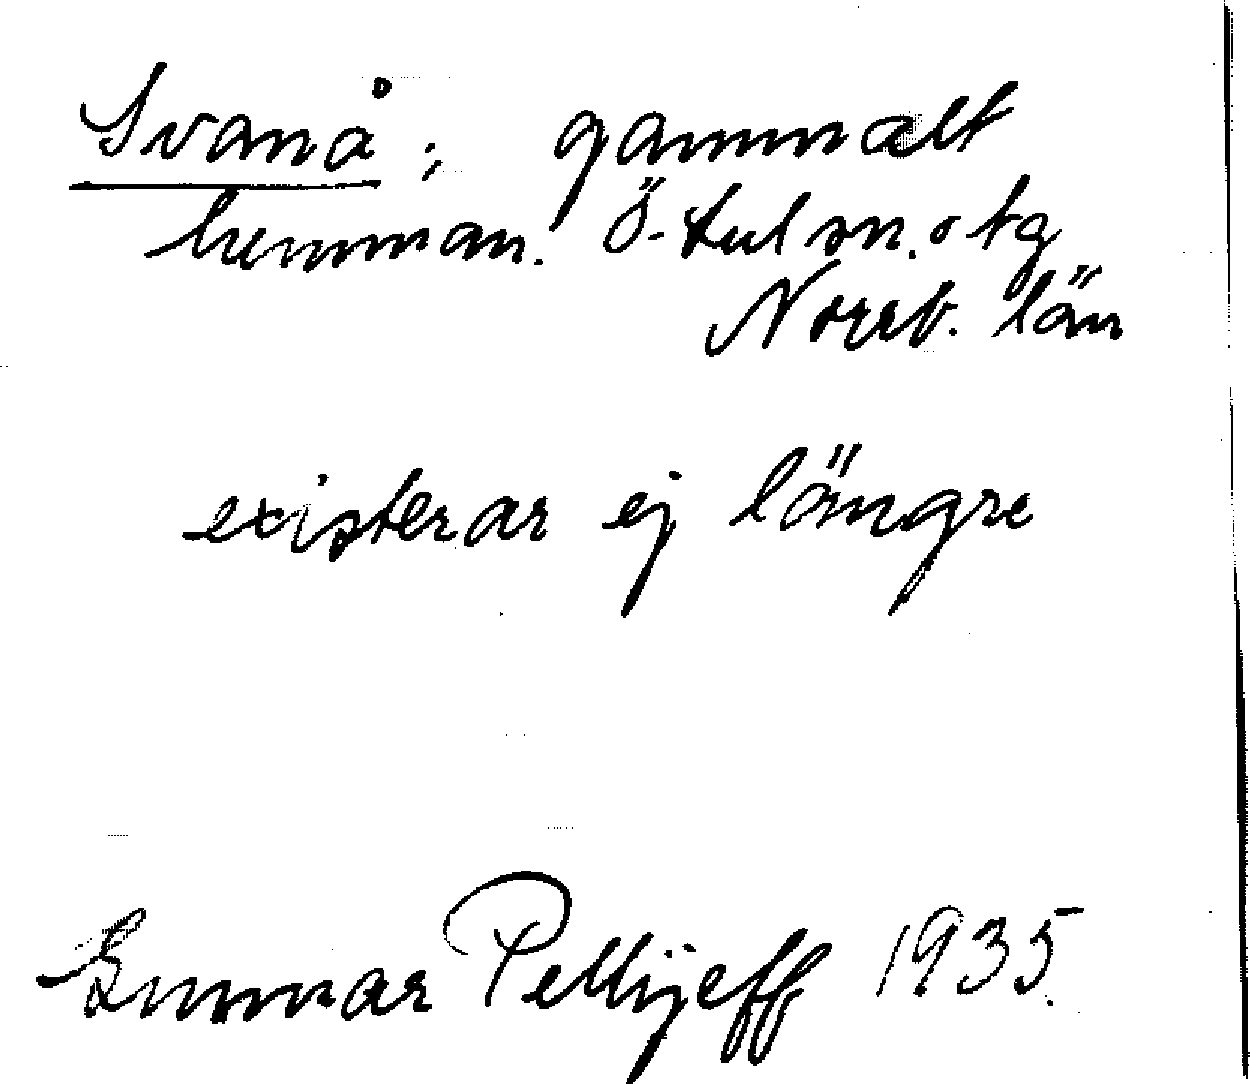 Svanå; gammalt
hemman. Ö-kal sn. o tg
Norrb. län
existerar ej längre
Gunnar Pellijeff 1935.